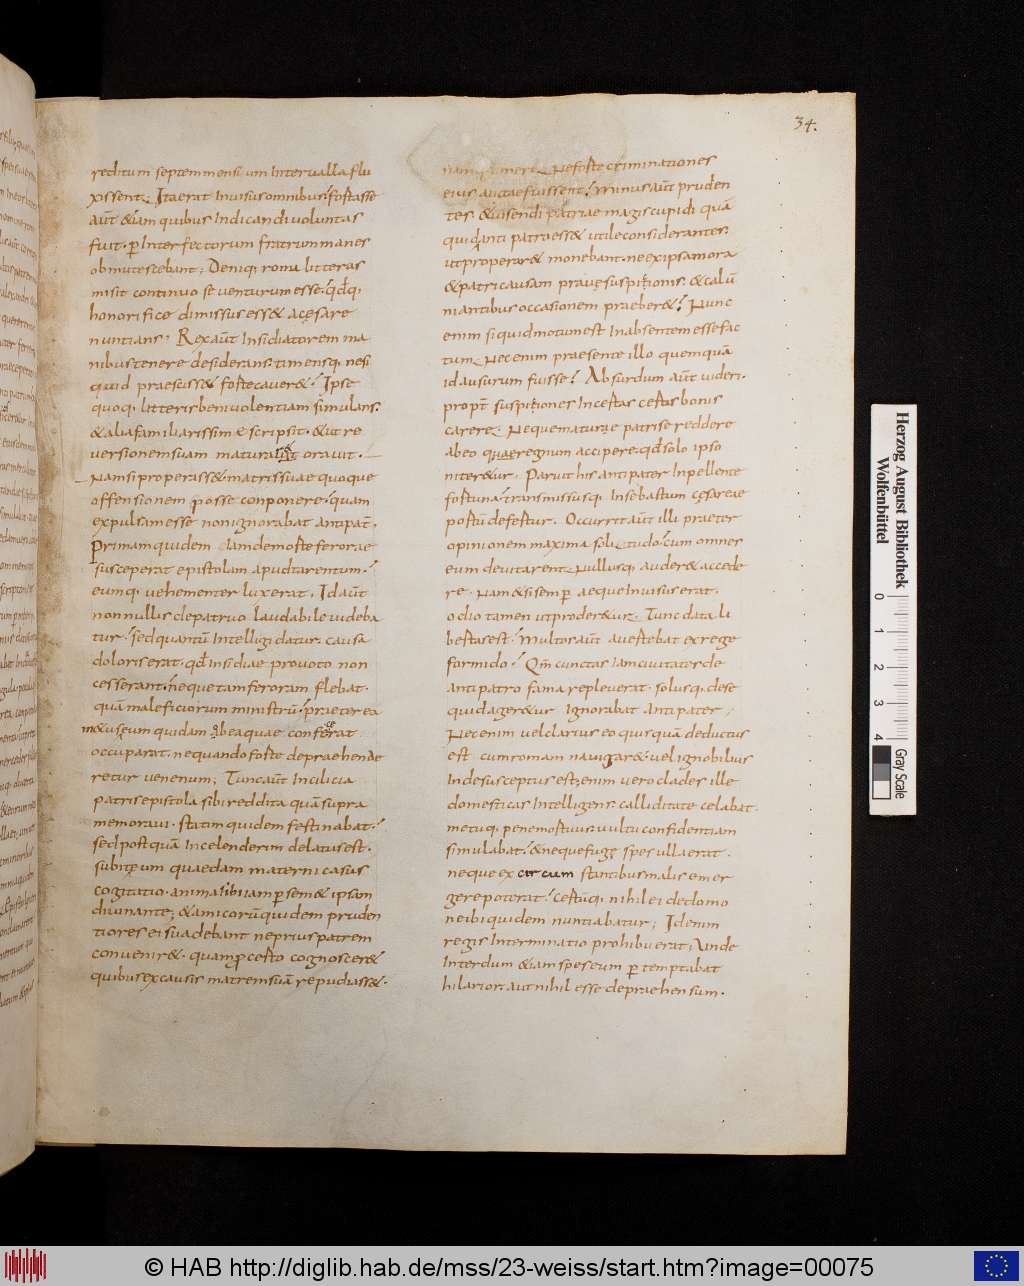 34.
reditum septem mensium Intervalla flu
xissent; Itaerat Invisus omnibus; fortasse
aūt &iam quibus Indicandi voluntas
fuit. ꝑ Inter fectorum fratrum manes
obmutescebant; Deniq; roma litteras
misit continuo se venturum esse. qđq;
honorifice dimissus ess& a cęsare
nuntians. Rex aūt Insidiatorem ma
nibus tenere desiderans. timensq; nesi
quid praescisset forte caver&. Ipse
quoq; litteris benivolentiam simulans.
& alia familiarissime scripsit. & ut re
versionem suam maturar& oravit.
Nam si properass& matris suae quoque
offensionem posse conponere. quam
expulsam esse non ignorabat antipat̄.
Primam quidem Iamdemorte ferorae
susceperat epistolam apud tarentum.
eumq; vehementer luxerat. Id aūt
nonnullis de patruo laudabile videba
tur. sed quantū Intellegi datur. causa
doloris erat. qđ insidiae pro voto non
cesserant. neque tam feroram flebat.
quam maleficiorum ministrū. praeterea
m&useum quidam obeaquae conferat
occuparat. ne quando forte depraehende
retur venenum; Tunc aūt In cilicia
patris epistola sibi reddita quā supra
memoravi. statim quidem festinabat.
sed postquā In celenderim delatus est.
subit eum quaedam materni casus
cogitatio. anima sibi iam ꝑ sem& ipsam
divinante; & amicorū quidem pruden
tiores ei suadebant ne prius patrem
convenir&. quam ꝑ certo cognoscer&
quibus ex causis matrem suā repudiass&.
criminationes
eius auctae fuissent. Minus aūt pruden
tes. & visendi patriae magis cupidi quā
quid anti patro ess& utile considerantes.
ut properar& monebant. ne ex ipsa mora
& patri causam pravę suspitionis. & calū
niantibus occasionem praeber&. Nunc
enim si quid motum est In absentem esse fac
tum. Nec enim praesente illo quemquā
id ausurum fuisse. Absurdum aūt videri.
propt̄ suspitiones Incertas certas bonis
carere. Neque mature patri se reddere
ab eo quae regnum accipere. qđ solo ipso
niter&ur. Paruit his antipater Inpellente
fortuna. transmissusq; In sebastum cęsareae
portū defertur. Occurrit aūt illi praeter
opinionem maxima solitudo. cum omnes
eum devitarent. Nullusq; auder& accede
re. Nam & si semꝑ aeque Invisus erat.
odio tamen ut proder&ur. Tunc data li
bertas est. Multos aūt avertebat ex rege
formido. Qm̄ cunctas Iam civitates de
antipatro fama repleverat. solusq; de se
quid ager&ur Ignorabat Antipater;
Nec enim vel clarius eo quisquā deductus
est cum romam navigar& vel ignobilius
Inde susceptus est; enim vero clades ille
domesticas Intelligens. calliditate celabat.
metuq; pene mortuus. vultu confidentiam
simulabat. & neque fugę spes ulla erat.
neque ex circum stantibus malis emer
gere poterat. certūq; nihil ei de domo
ne ibi quidem nuntiabatur; Idenim
regis Interminatio prohibuerat; Unde
Interdum & iam spes eum ꝑtemptabat
hilarior. aut nihil esse depraehensum.
Herzog August Bibliothek
Wolfenbüttel
0 1 2 3 4
Gray Scale
© HAB http://diglib.hab.de/mss/23-weiss/start.htm?image=00075